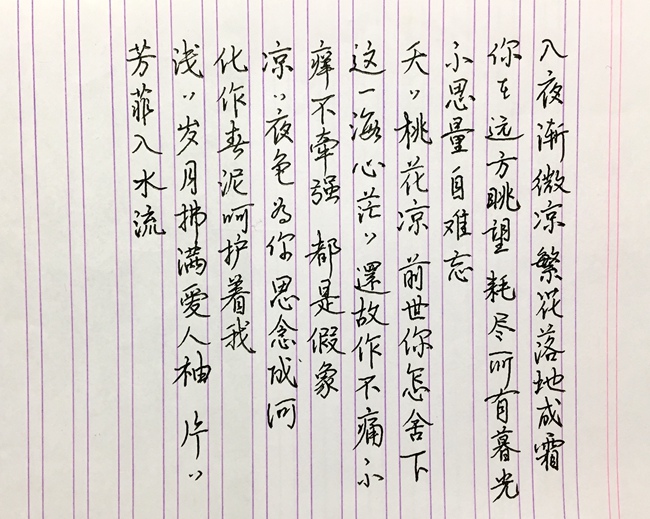 入夜渐微凉 繁花落地成霜
你在远方眺望 耗尽所有暮光
不思量自难忘
夭〃桃花凉 前世你怎舍下
这一海心茫〃 還故作不痛不
痒不牵强 都是假象
凉〃夜色为你思念成河
化作春泥呵护着我
浅〃岁月拂满爱人袖 片〃
芳菲入水流